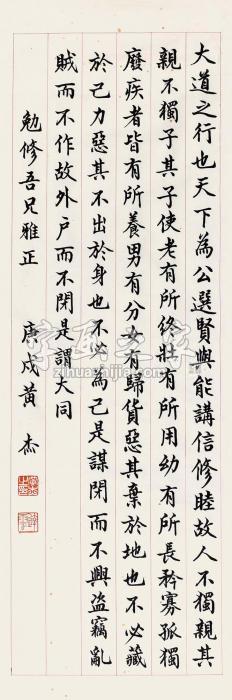 大道之行也天下為公選賢與能講信修睦故人不獨親其
親不獨子其子使老有所終壯有所用幼有所長矜寡孤獨
廢疾者皆有所養男有分女有歸貨惡其棄於地也不必藏
於己力惡其不出於身也不必為己是謀閉而不興盜竊亂
賊而不作故外戶而不閉是謂大同
勉修吾兄雅正 庚戌黃杰